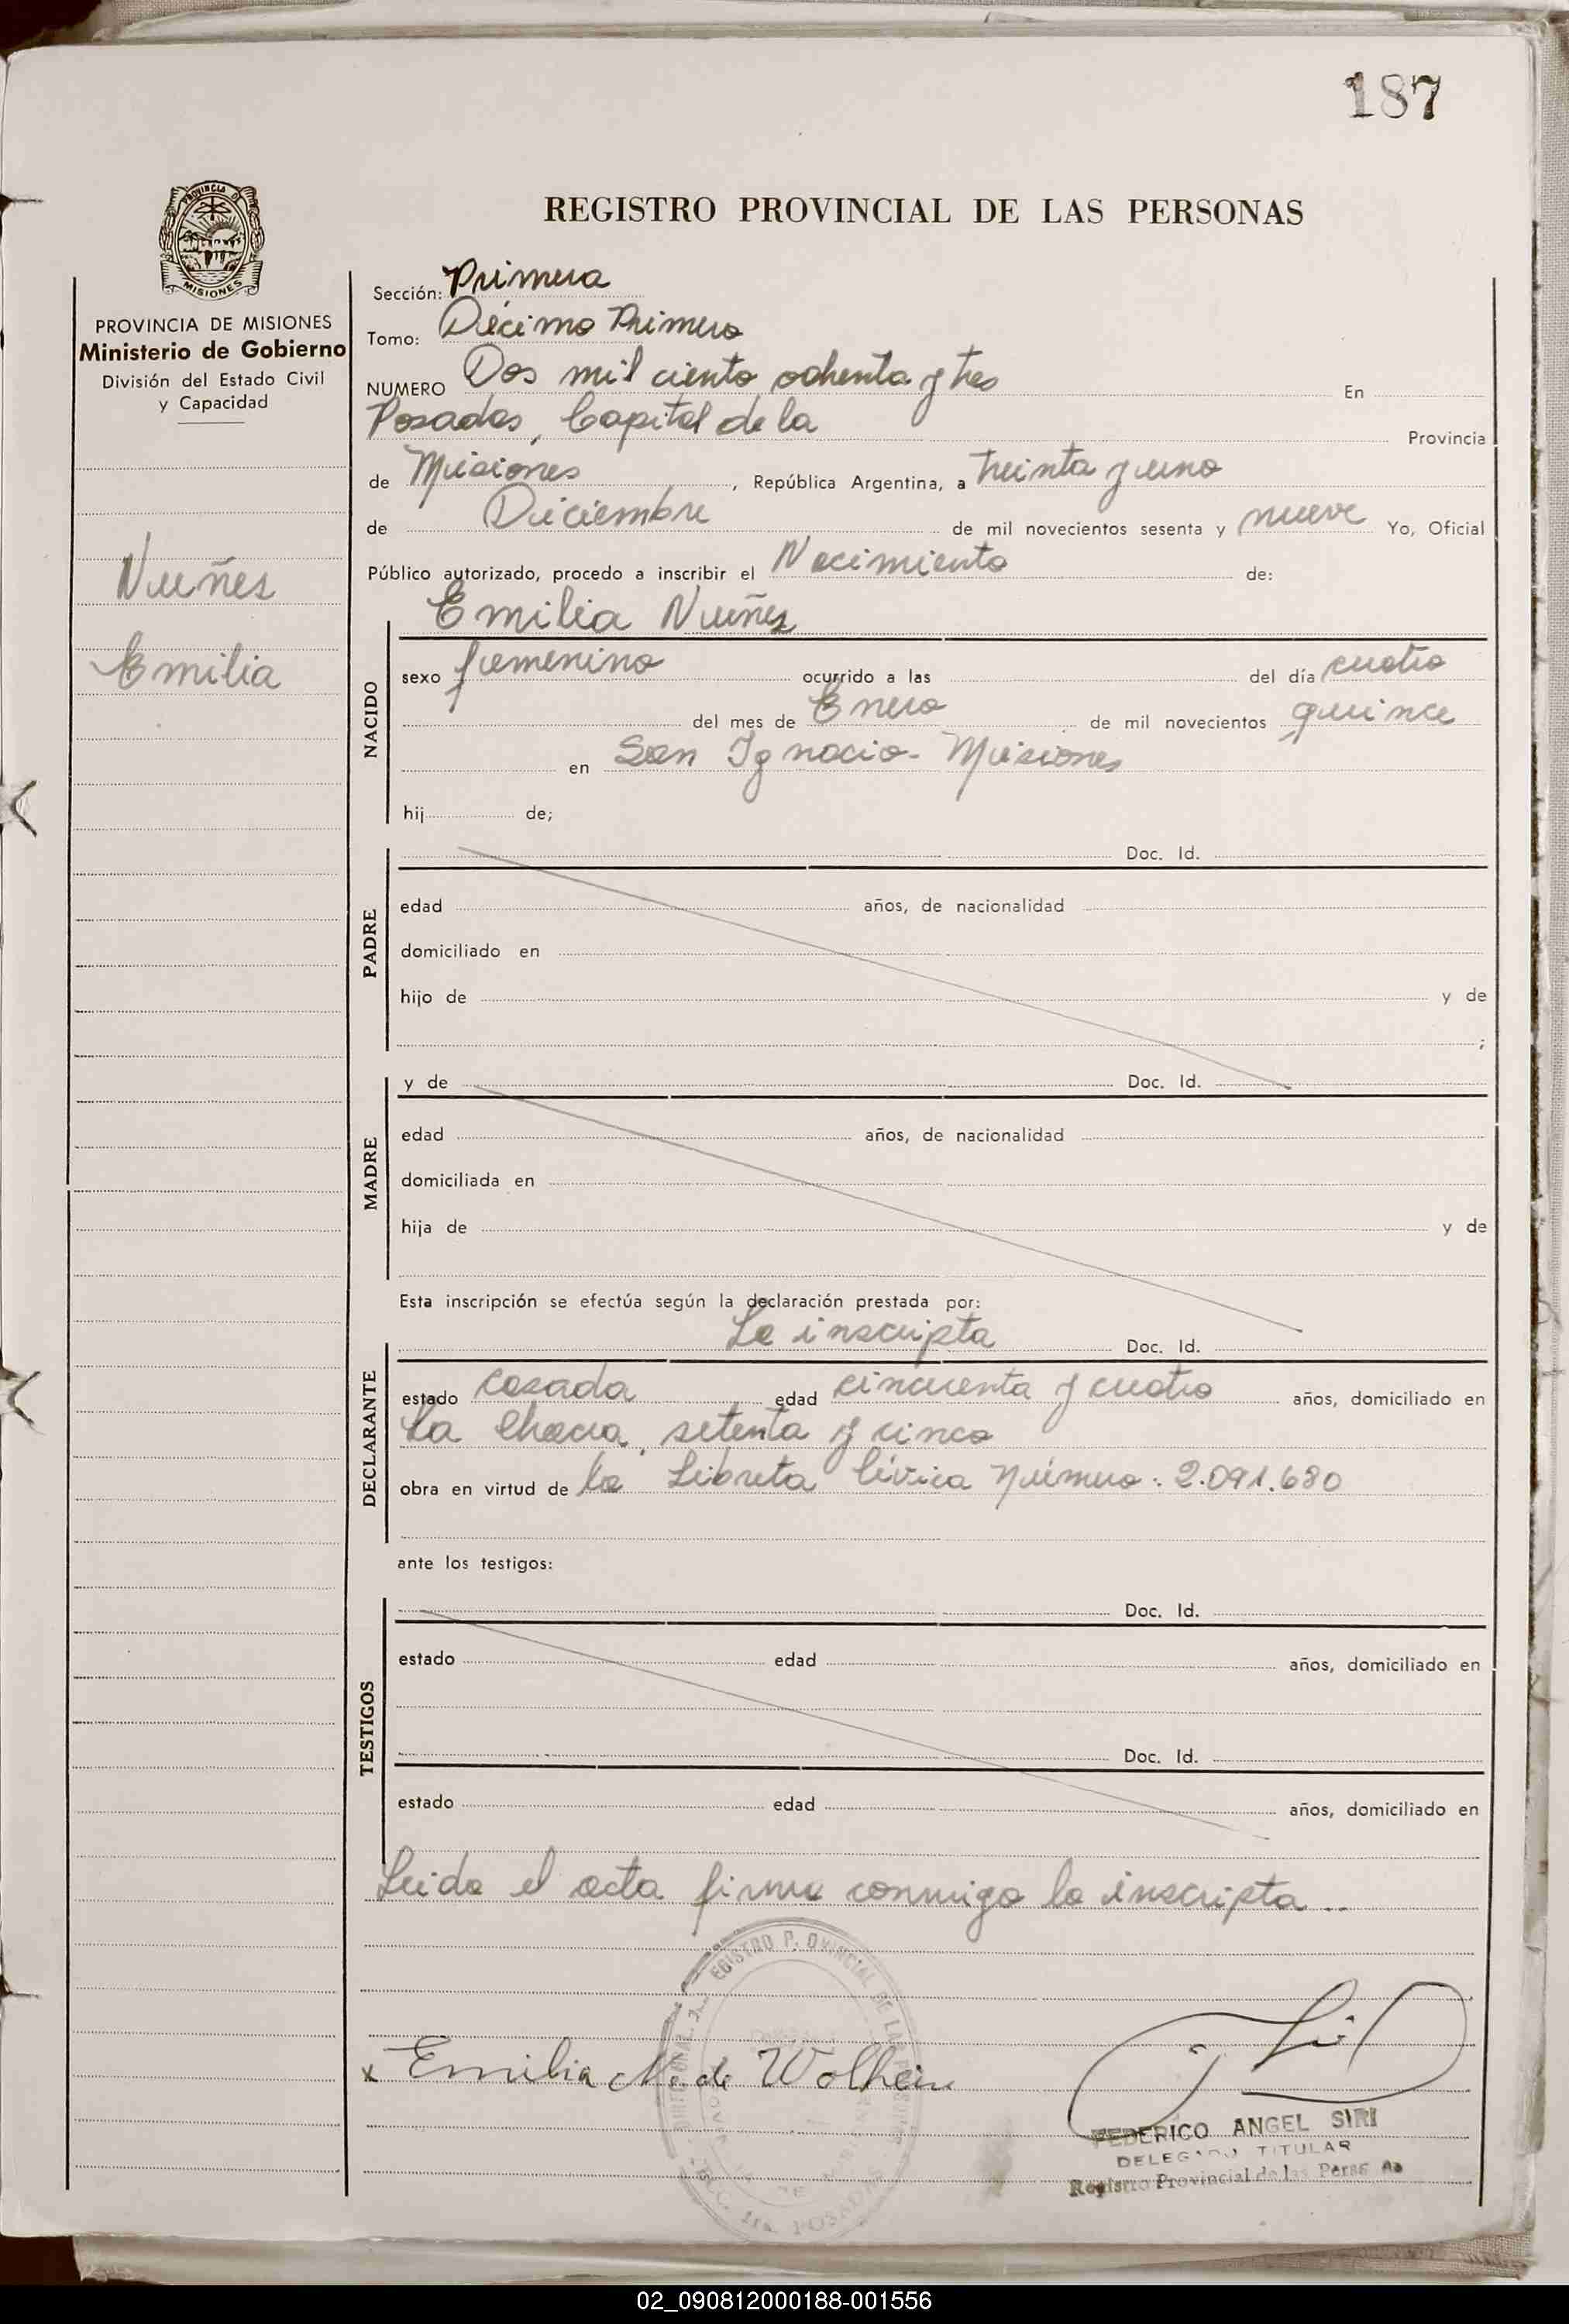 187
PROVINCIA DE MISIONES
PROVINCIA DE MISIONES
Ministerio de Gobierno
División del Estado Civil
y Capacidad
Nuñes
Emilia
REGISTRO PROVINCIAL DE LAS PERSONAS
Sección: Primera
Tomo: Décimo Primero
NUMERO Dos mil ciento ochenta y tres En
Posadas, Capital de la Provincia
de Misiones, República Argentina, a treinta y uno
de Diciembre de mil novecientos sesenta y nueve Yo, Oficial
Público autorizado, procedo a inscribir el Nacimiento de:
Emilia Nuñez
NACIDO
sexo femenino ocurrido a las del día cuatro
del mes de Enero de mil novecientos quince
en San Ignacio - Misiones
hij de;
PADRE
Doc. Id.
edad años, de nacionalidad
domiciliado en
hijo de y de
;
MADRE
y de Doc. Id.
edad años, de nacionalidad
domiciliada en
hija de y de
Esta inscripción se efectúa según la declaración prestada por:
DECLARANTE
La inscripta Doc. Id.
estado casada edad cincuenta y cuatro años, domiciliado en
La Chacra, setenta y cinco
obra en virtud de la Libreta Cívica Número: 2.091.680
ante los testigos:
TESTIGOS
Doc. Id.
estado edad años, domiciliado en
Doc. Id.
estado edad años, domiciliado en
Leida el acta firma conmigo la inscripta..
x Emilia N. de Wolhein
FEDERICO ANGEL SIRI
DELEGADO TITULAR
Registro Provincial de las Personas
02_090812000188-001556